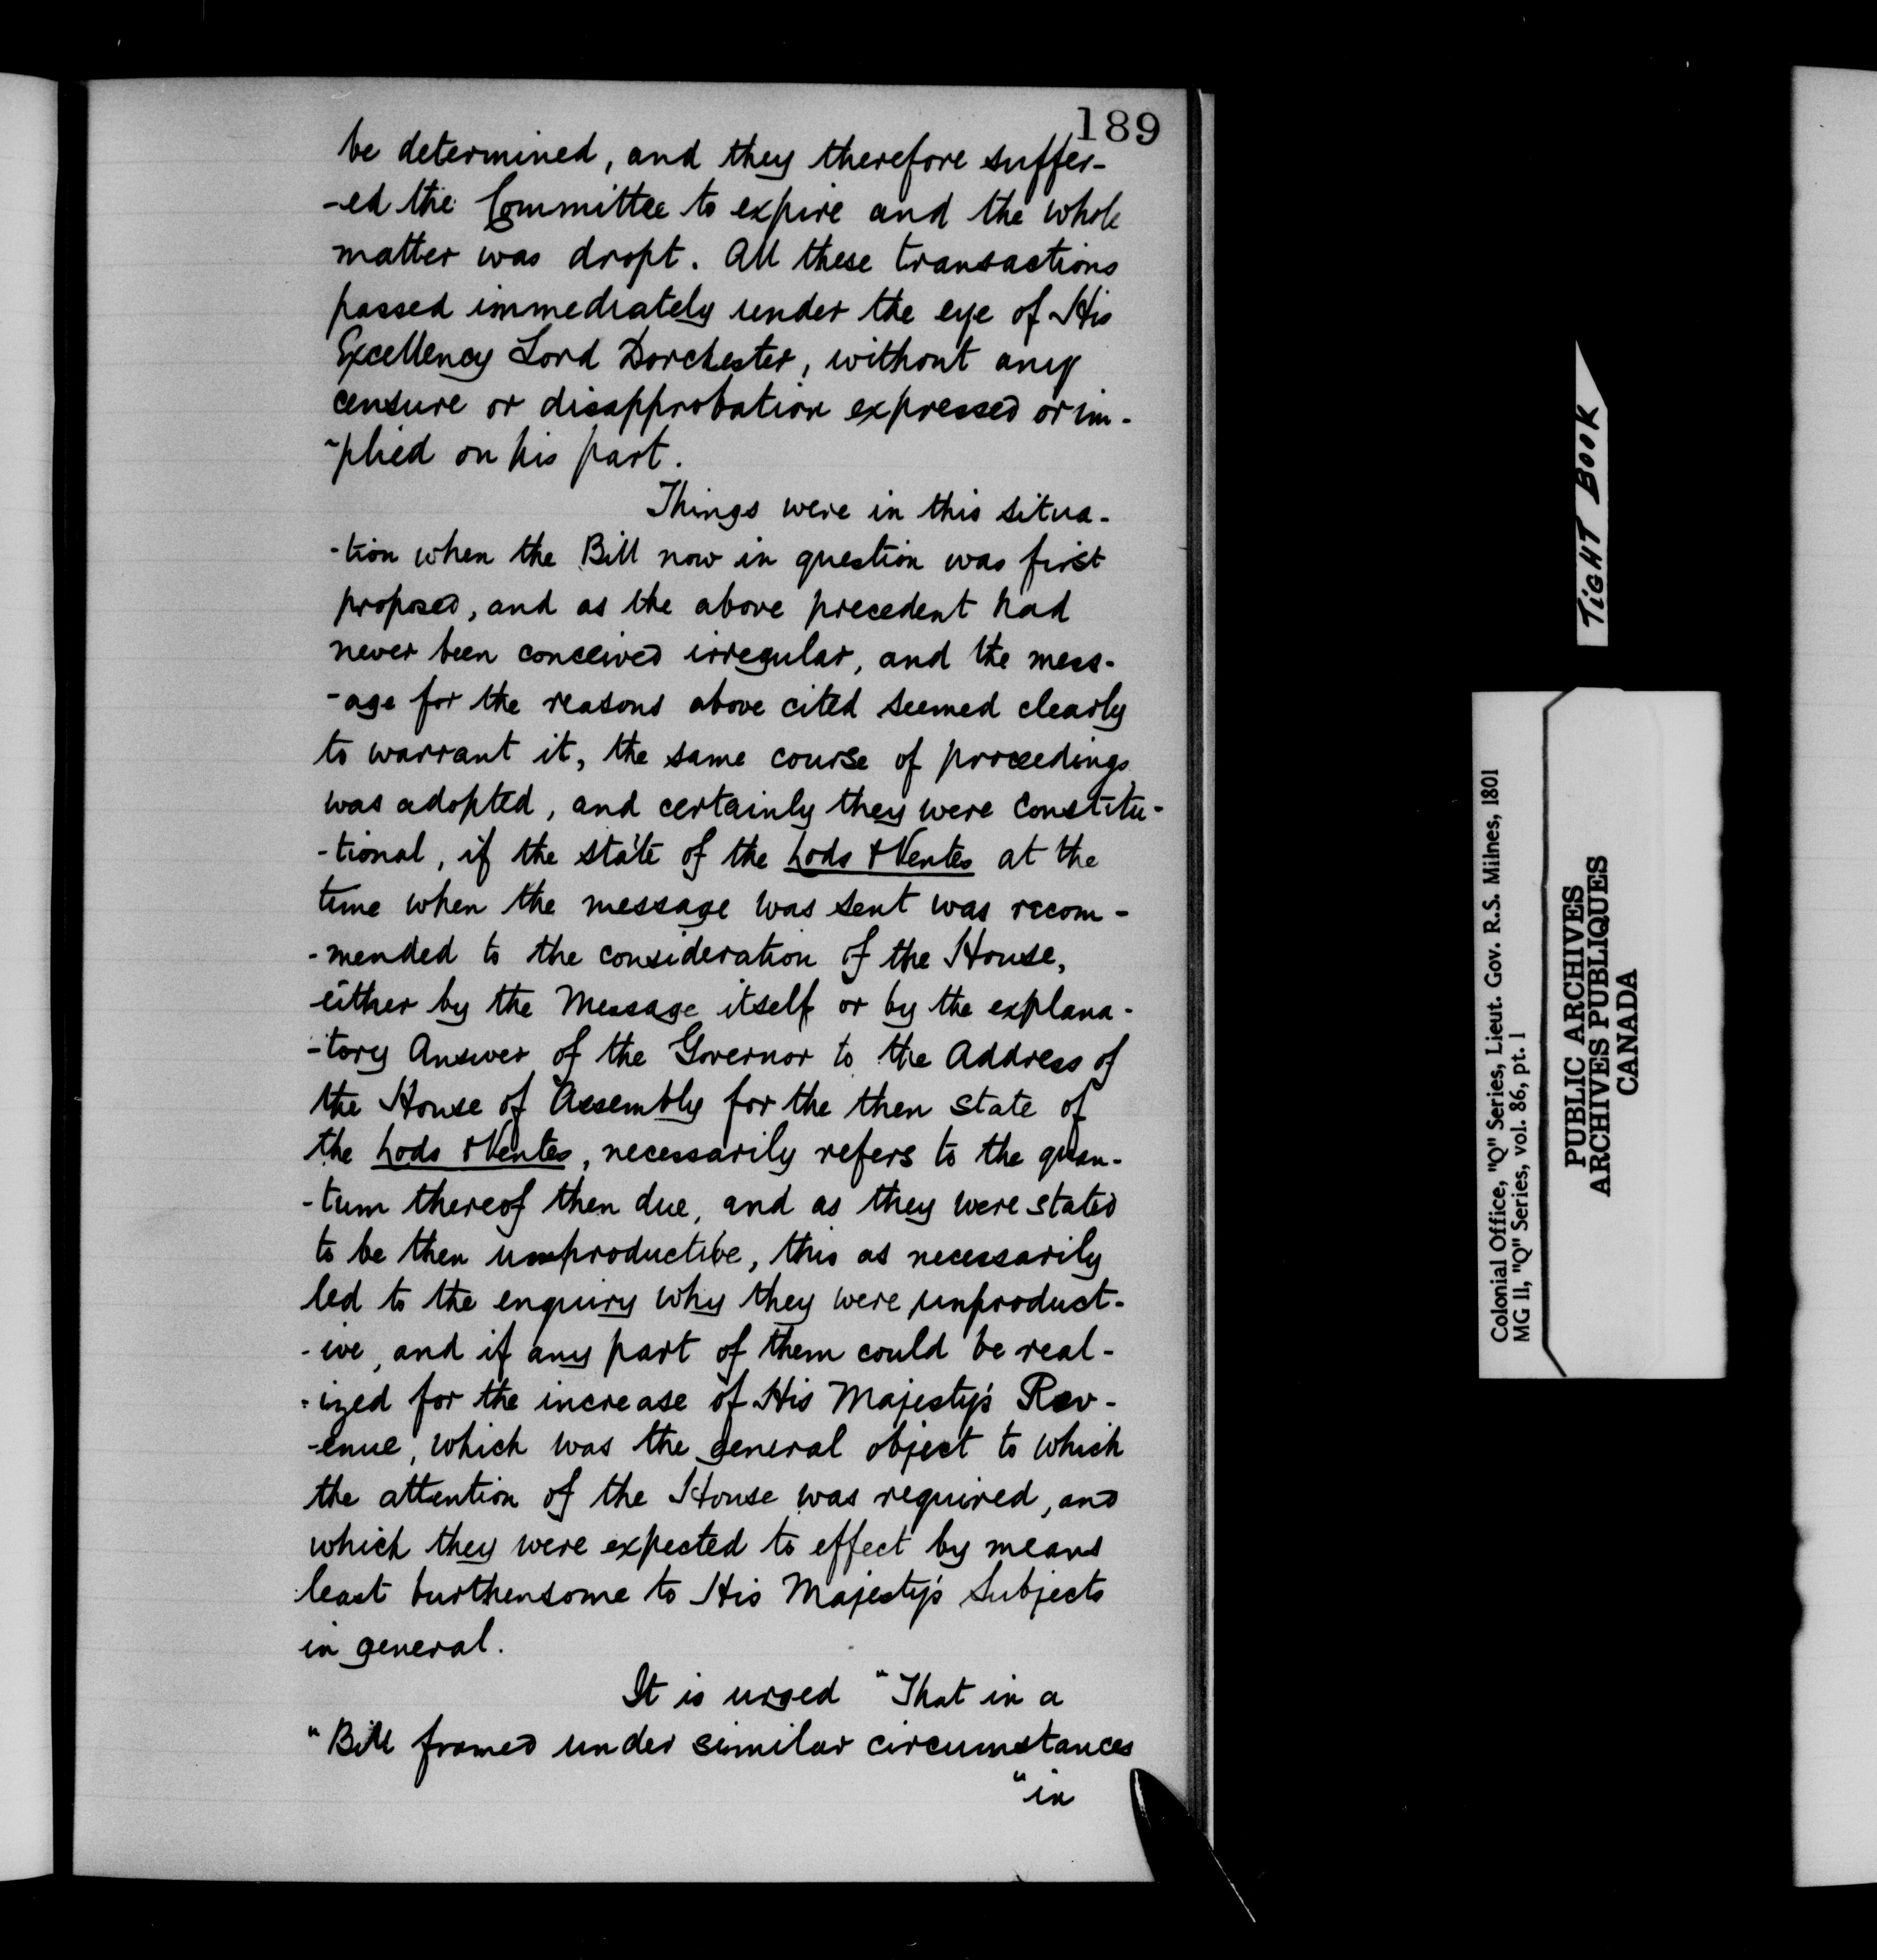 189
be determined, and they therefore suffer-
-ed the Committee to expire and the whole
matter was dropt. All these transactions
passed immediately under the eye of His
Excellency Lord Dorchester, without any
censure or disapprobation expressed or im-
-plied on his part.
Things were in this situa-
-tion when the Bill now in question was first
proposed, and as the above precedent had
never been conceived irregular, and the mess-
-age for the reasons above cited seemed clearly
to warrant it, the same course of proceedings
was adopted, and certainly they were Constitu-
-tional, if the state of the Lods & Ventes at the
time when the message was sent was recom-
-mended to the consideration of the House,
either by the Message itself or by the explana-
-tory Answer of the Governor to the Address of
the House of Assembly for the then state of
the Lods & Ventes, necessarily refers to the quan-
-tum thereof then due, and as they were stated
to be then unproductive, this as necessarily
led to the enquiry why they were unproduct-
-ive, and if any part of them could be real-
-ized for the increase of His Majesty's Rev-
-enue, which was the general object to which
the attention of the House was required, and
which they were expected to effect by means
least burthensome to His Majesty's Subjects
in general.
It is urged "That in a
"Bill framed under similar circumstances
"in
TIGHT BOOK
Colonial Office, "Q" Series, Lieut. Gov. R.S. Milnes, 1801
MG 11, "Q" Series, vol. 86, pt. 1
PUBLIC ARCHIVES
ARCHIVES PUBLIQUES
CANADA